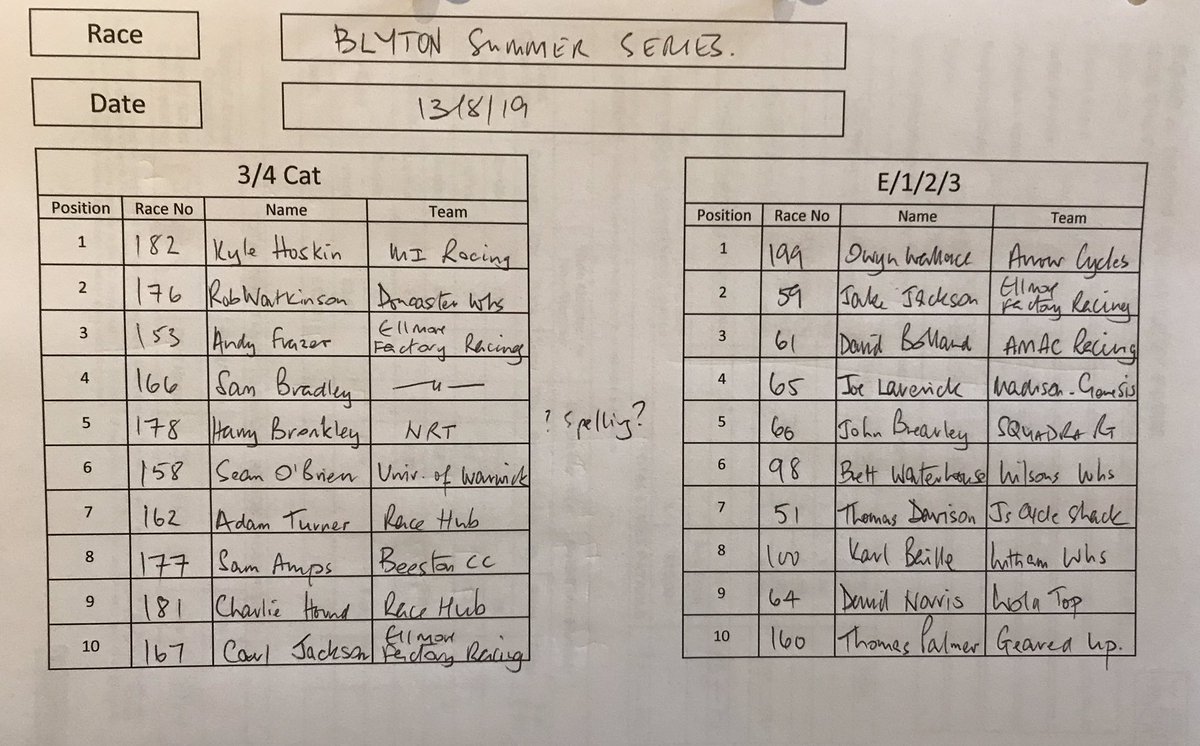 Race BLYTON SUMMER SERIES.
Date 13/8/19
3/4 Cat
Position Race No Name Team
1 182 Kyle Hoskin MI Racing
2 176 Rob Watkinson Doncaster Whs
3 153 Andy Frazer Ellmore Factory Racing
4 166 Sam Bradley —"—
5 178 Harry Bronkley NRT ? Spelling?
6 158 Sean O'Brien Univ. of Warwick
7 162 Adam Turner Race Hub
8 177 Sam Amps Beeston CC
9 181 Charlie Hound Race Hub
10 167 Carl Jackson Ellmore Factory Racing
E/1/2/3
Position Race No Name Team
1 199 Owyn Wallace Arrow Cycles
2 59 Jake Jackson Ellmore Factory Racing
3 61 David Bolland AMAC Racing
4 65 Joe Laverick Madison-Genesis
5 66 John Brearley SQUADRA RG
6 98 Brett Waterhouse Wilsons Whs
7 51 Thomas Davison Js Cycle Shack
8 100 Karl Witham Whs
9 64 David Norris Lola Top
10 160 Thomas Palmer Geared Up.